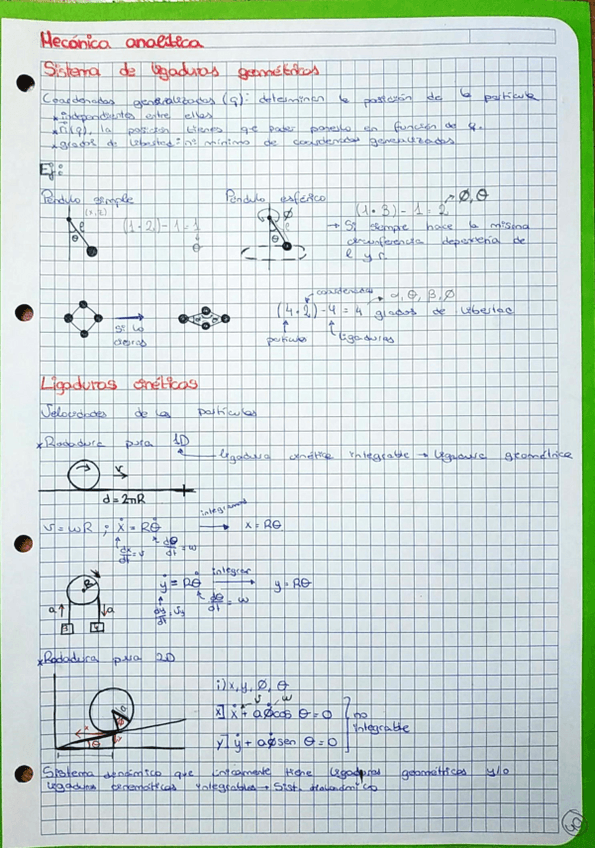 Mecánica analítica
Sistema de ligaduras geométricas
Coordenadas generalizadas (q): determinan la posición de la partícula
* independientes entre ellas
* r(q), la posición tienes que poder ponerlo en función de q.
* grados de libertad: nº mínimo de coordenadas generalizadas
Ej:
Péndulo simple
l
θ
(1·2)-1=1
θ
Péndulo esférico
Ø
l
θ
(1·3)-1=2 Ø, θ
→ Si siempre hace la misma
circunferencia dependería de
l y r.
Si lo
coordenadas
(4·2)-4=4 grados de libertad
α, θ, β, Ø
partículas
ligaduras
Ligaduras cinéticas
Velocidades de las partículas
* Rodadura pura 1D
ligadura cinética integrable → ligadura geométrica
v
d=2πR
v=ωR ; ẋ=Rθ̇ integramos x=Rθ
dx/dt=v dθ/dt=ω
R
a a
ẏ=Rθ̇ integrar y=Rθ
dy/dt=vy dθ/dt=ω
* Rodadura pura 2D
i) x, y, Ø, θ
v ω
x] ẋ+aØ̇cos θ=0
y] ẏ+aØ̇sen θ=0
no
integrable
θ
Sistema dinámico que únicamente tiene ligaduras geométricas y/o
ligaduras cinemáticas integrables → Sist.